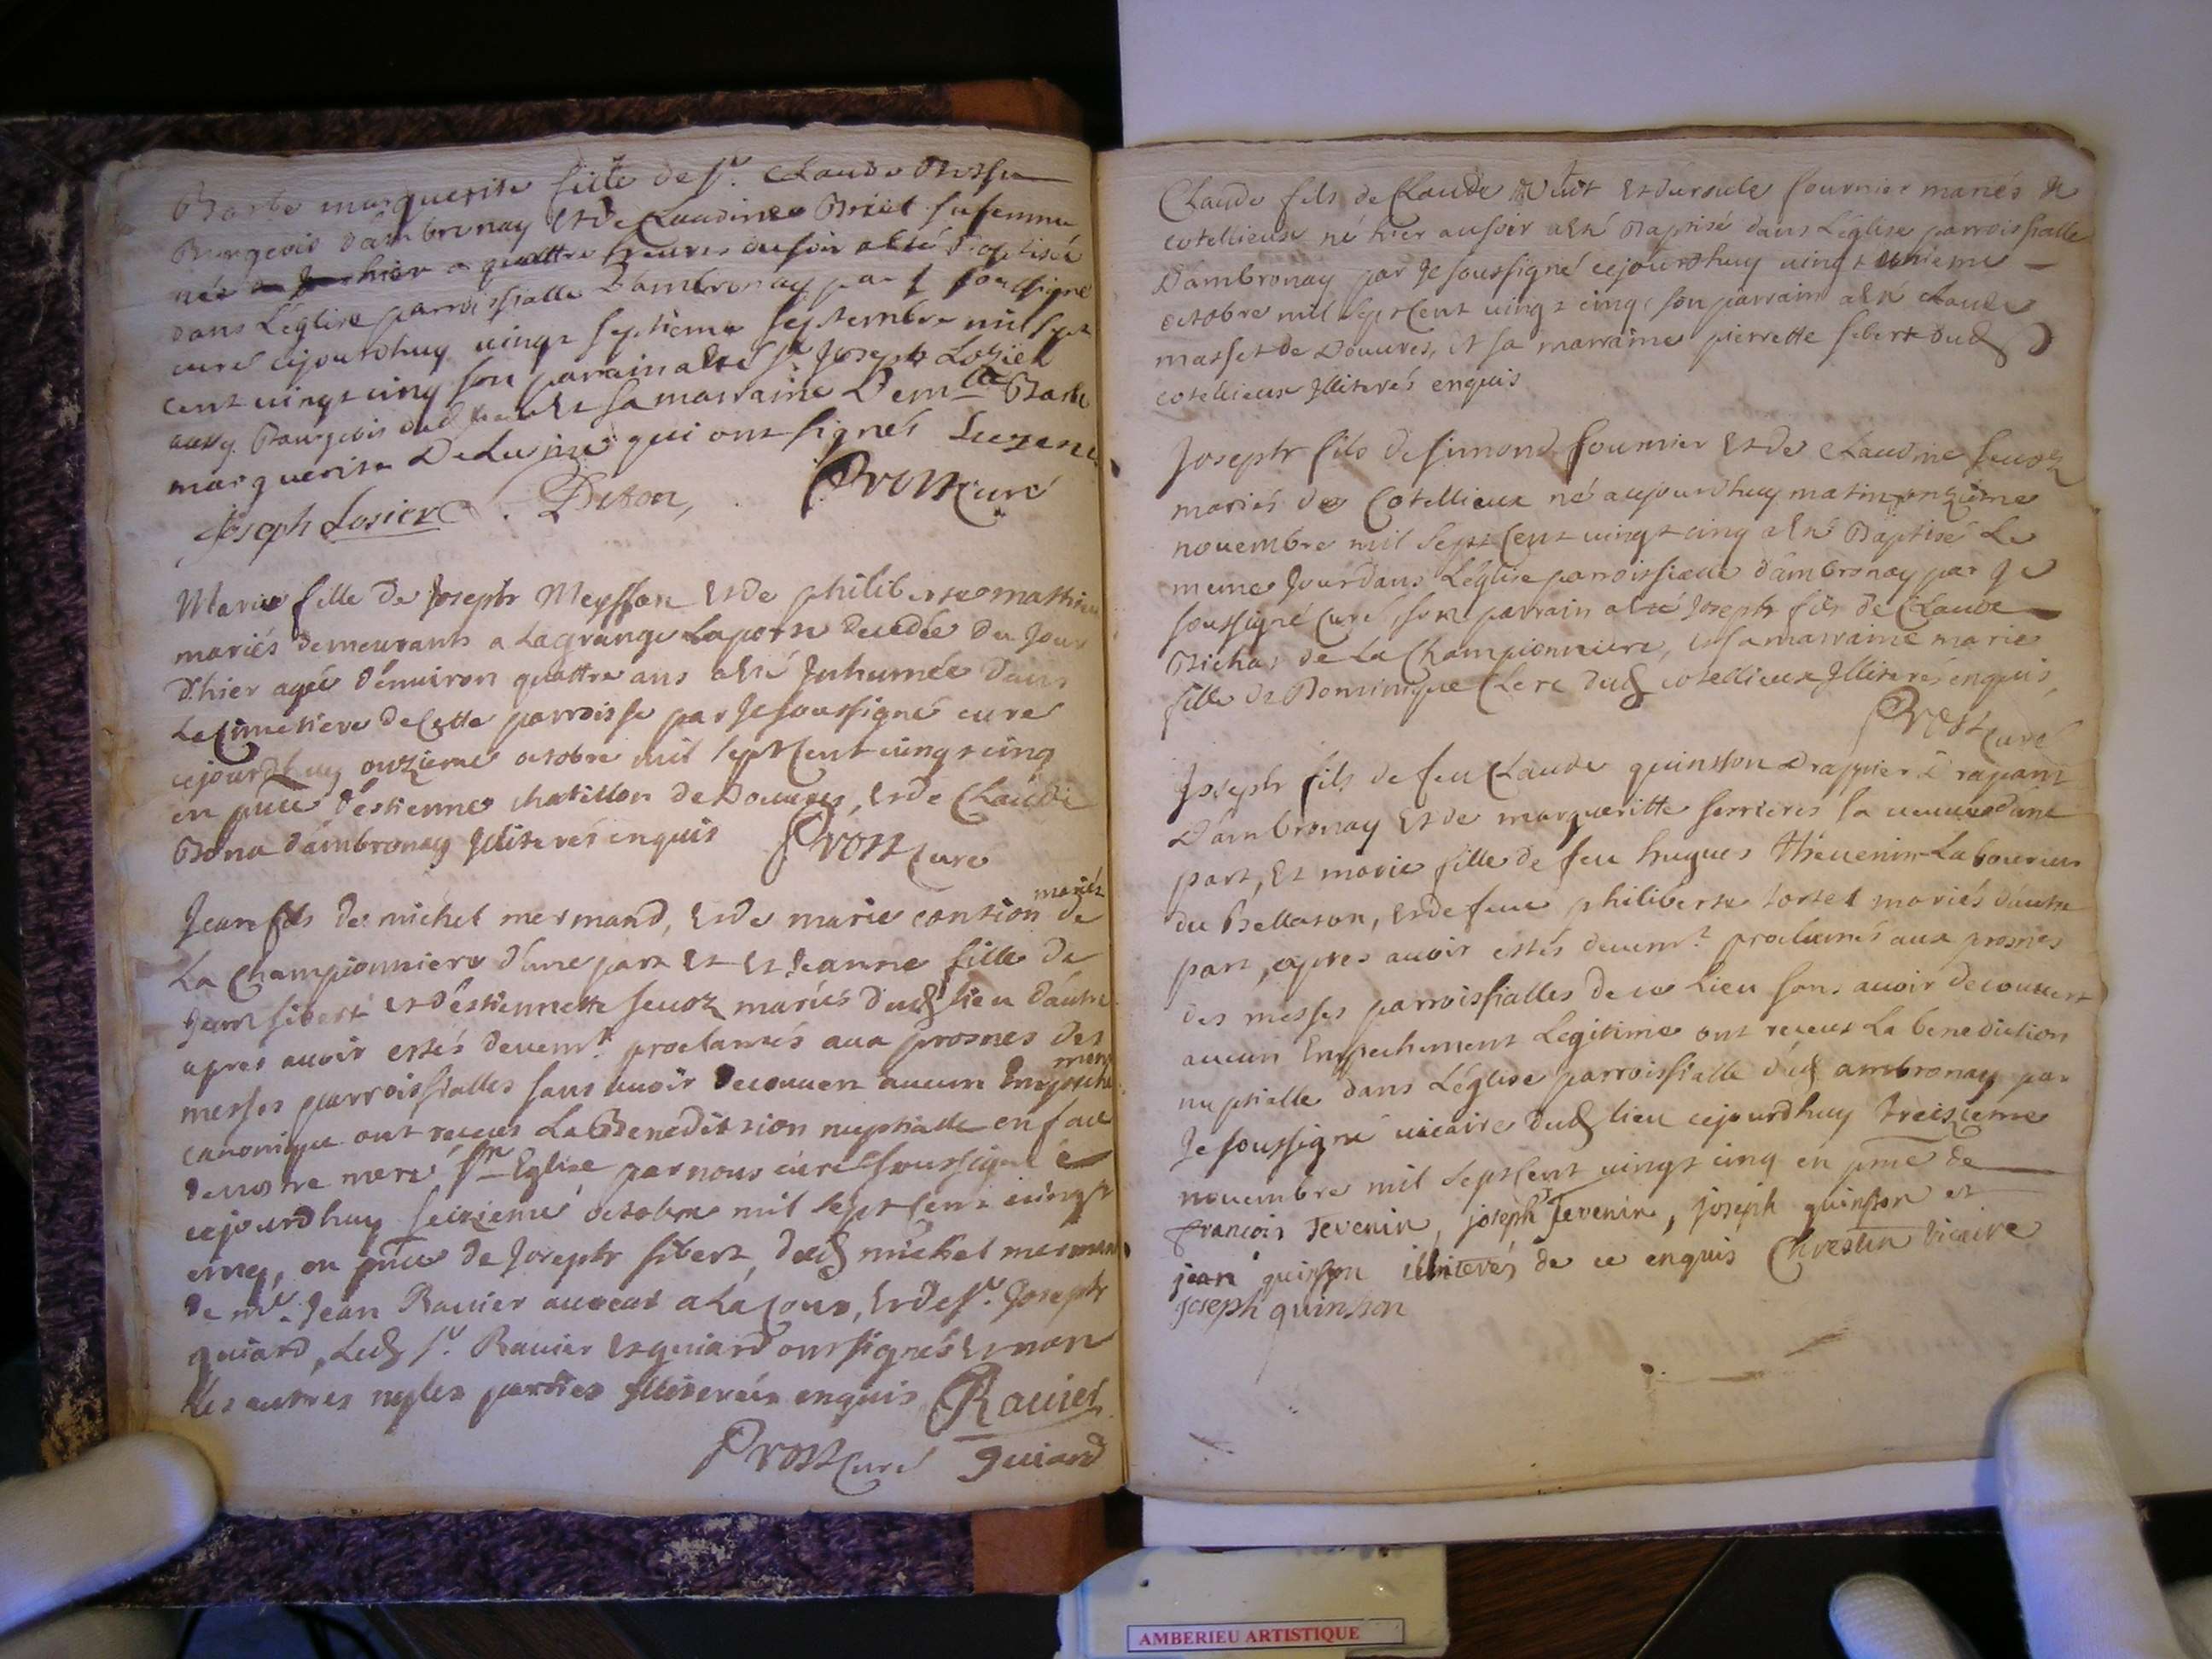 Barbe marguerite fille de Sr. Claude
Bourgeois dambronay Et de Claudine Briel sa femme
née hier a quattre heures du soir a Esté Baptisée
dans Leglise parroissialle Dambronay par J soussigné
curé cejourdhuy vingt septieme septembre mil sept
cent vingt cinq son parrain a Esté Sr Joseph Lozier
aussy Bourgeois dud lieu Et sa marraine Demlle Barbe
marguerite qui ont signés
Joseph Losier . Diton, . Prost curé
Marie fille de Joseph Meysson Et de philiberte mathieu
mariés demeurants a Lagrange Laporte decedée du Jour
d'hier agée d'environ quattre ans a Esté Inhumée dans
Le Cimetiere de Cette parroisse par Je soussigné curé
cejourdhuy onzieme octobre mil sept Cent vingt cinq
en pnce d'estienne chatillon de Douvres, Et de Claude
Bona d'ambronay Illiterés enquis Prost Curé
mariés
Jean fils de michel mermand, Et de marie contion de
La Championniere d'une part Et Et Jeanne fille de
Jean sibert et d'estiennette sevoz mariés dud lieu d'autre
apres avoir estés devemt. proclamés aux prosnes des
ment
messes parroissialles sans avoir decouvert aucun Empeche
canonique ont receus La Benediction nuptialle en face
de nostre mere Ste Eglise par nous curé soussigné
cejourdhuy seizieme octobre mil sept Cent vingt
cinq, en pnce de Joseph sibert, dud michel mermand
de mr. Jean Ravier avocat a La Cour, Et de Sr. Joseph
guiard, Led Sr. Ravier Et guiard ont signés Et non
Les autres ny les parties Illiterées enquis Ravier
Prost Curé guiard
Claude fils de Claude Et d'ursule fournier mariés de
cotellieux né hier au soir a Esté Baptisé dans Léglise parroissialle
Dambronay par Je soussigné cejourdhuy vingt unieme
octobre mil sept Cent vingt cinq, son parrain a Esté Claude
masset de Douvres, Et sa marraine pierrette sibert dud
cotellieux Illiterés enquis
Joseph fils de simond fournier Et de Claudine sevoz
mariés de Cotellieux né aujourdhuy matin onzieme
novembre mil sept Cent vingt cinq a Esté Baptisé Le
meme Jour dans Léglise parroissialle d'ambronay par Je
soussigné Curé, son parrain a Esté Joseph fils de Claude
Bichat de La Championniere, et sa marraine marie
fille de Dominique Clerc dud cotellieux Illiterés enquis
Prost Curé
Joseph fils de feu Claude quinsson Drappier
D'ambronay Et de margueritte ferrieres sa veuve d'une
part, Et marie fille de feu hugues thevenin Laboureur
du Bellaton, Et de feue philiberte tortel mariés d'autre
part, apres avoir estés devemt. proclamés aux prosnes
des messes parroissialles de ce Lieu sans avoir decouvert
aucun Empechement Legitime ont receus La benediction
nuptialle dans Léglise parroissialle dud ambronay par
Je soussigné vicaire dud lieu cejourdhuy treizieme
novembre mil sept Cent vingt cinq en pnce de
francois Tevenin, joseph Tevenin, joseph quinsson et
jean quinsson illiterés de ce enquis Chrestin Vicaire
joseph quinsson
AMBERIEU ARTISTIQUE